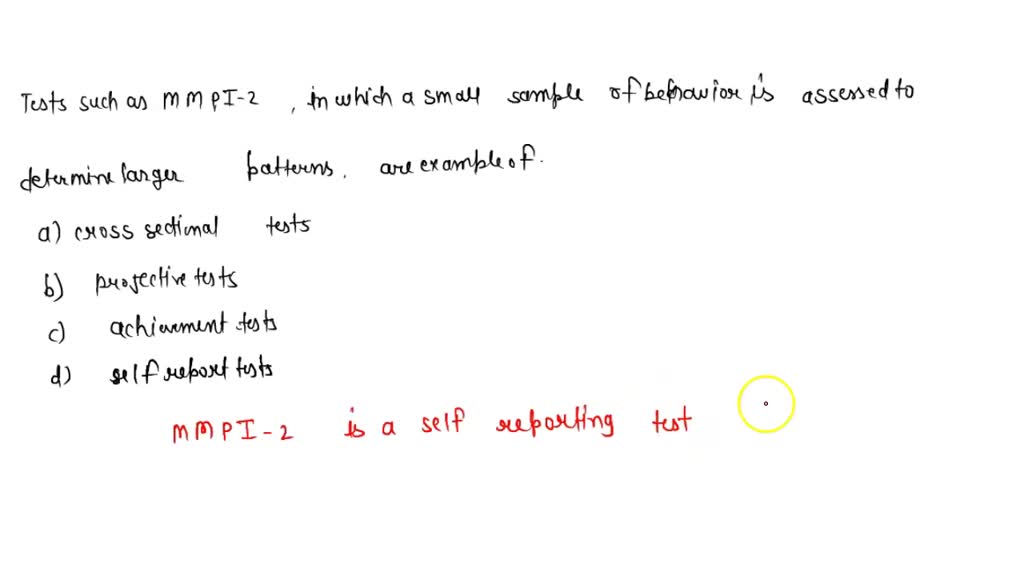 Tests such as MMPI-2, in which a small sample of behavior is assessed to
determine larger patterns, are example of.
a) cross sectional tests
b) projective tests
c) achievement tests
d) self report tests
MMPI-2 is a self reporting test